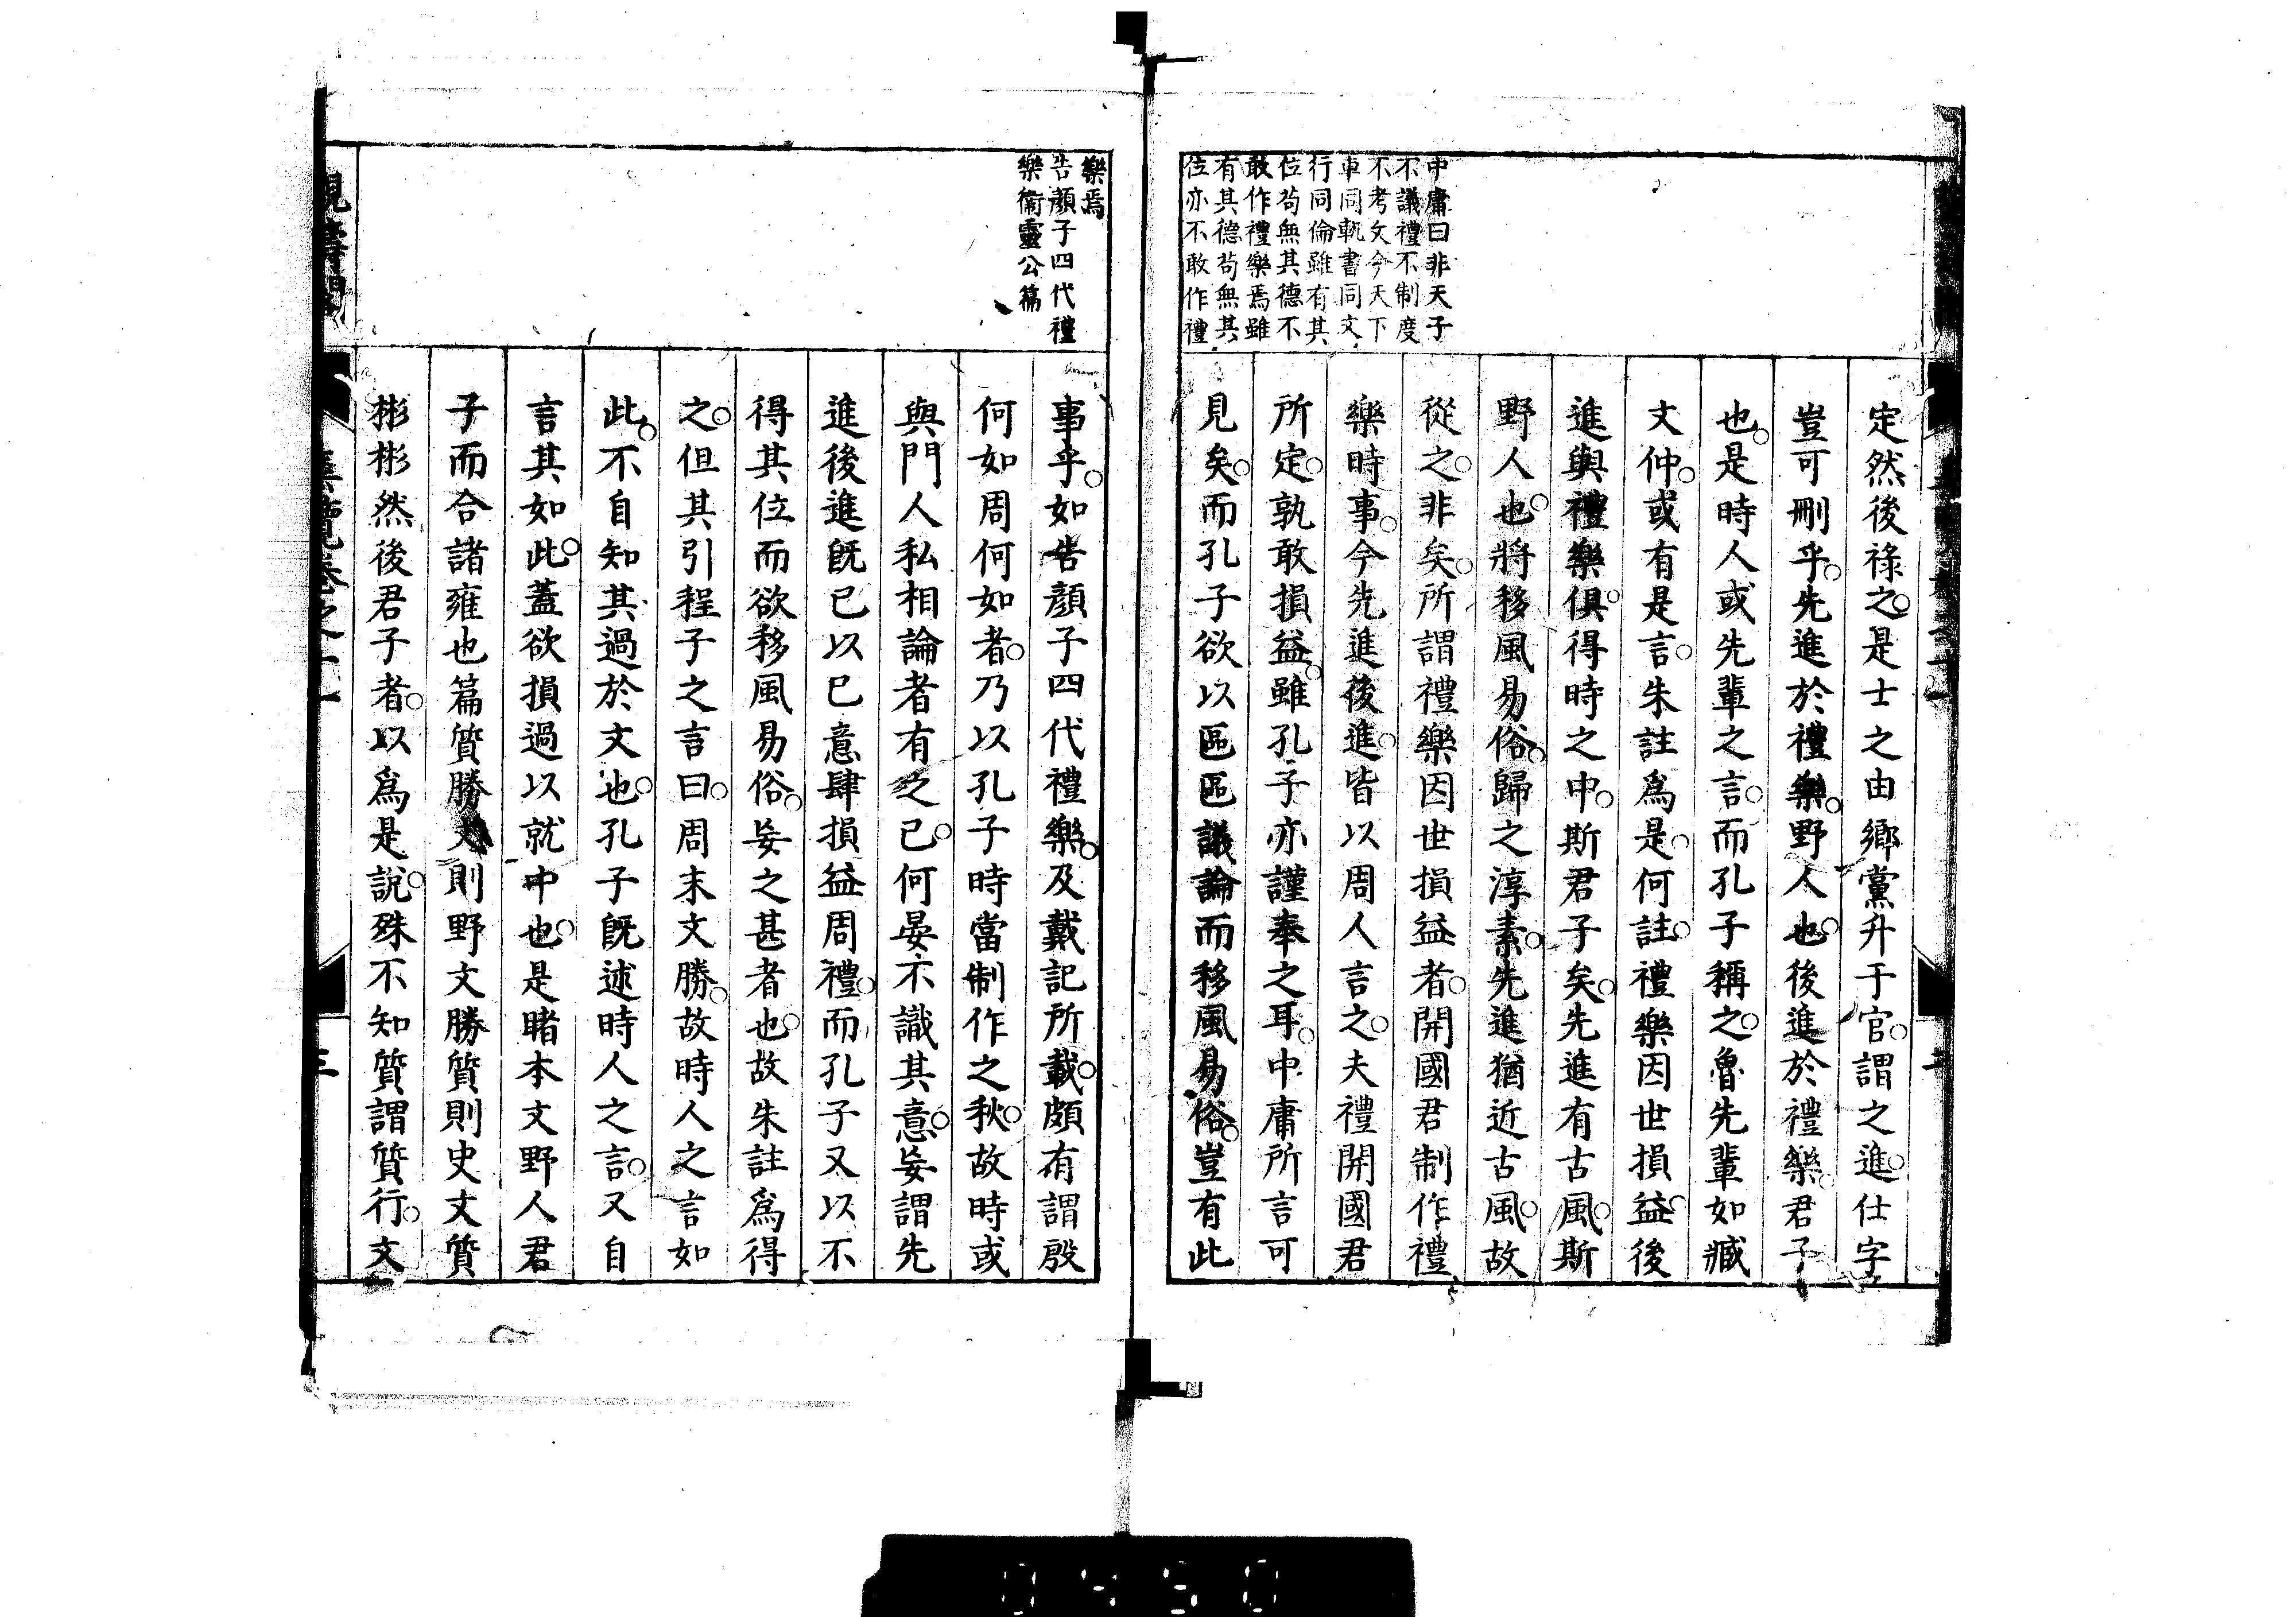 中庸曰非天子
不議禮不制度
不考文今天下
車同軌書同文
行同倫雖有其
位苟無其德不
敢作禮樂焉雖
有其德苟無其
位亦不敢作禮
定然後祿之是士之由鄉黨升于官謂之進仕字
豈可刪乎先進於禮樂野人也後進於禮樂君子
也是時人或先輩之言而孔子稱之魯先輩如臧
文仲或有是言朱註爲是何註禮樂因世損益後
進與禮樂俱得時之中斯君子矣先進有古風斯
野人也將移風易俗歸之淳素先進猶近古風故
從之非矣所謂禮樂因世損益者開國君制作禮
樂時事今先進後進皆以周人言之夫禮開國君
所定孰敢損益雖孔子亦謹奉之耳中庸所言可
見矣而孔子欲以區區議論而移風易俗豈有此
樂焉
告顏子四代禮
樂衞靈公篇
事乎如告顏子四代禮樂及戴記所載頗有謂殷
何如周何如者乃以孔子時當制作之秋故時或
與門人私相論者有之已何晏不識其意妄謂先
進後進旣已以己意肆損益周禮而孔子又以不
得其位而欲移風易俗妄之甚者也故朱註爲得
之但其引程子之言曰周末文勝故時人之言如
此不自知其過於文也孔子旣述時人之言又自
言其如此蓋欲損過以就中也是睹本文野人君
子而合諸雍也篇質勝文則野文勝質則史文質
彬彬然後君子者以爲是說殊不知質謂質行文
三